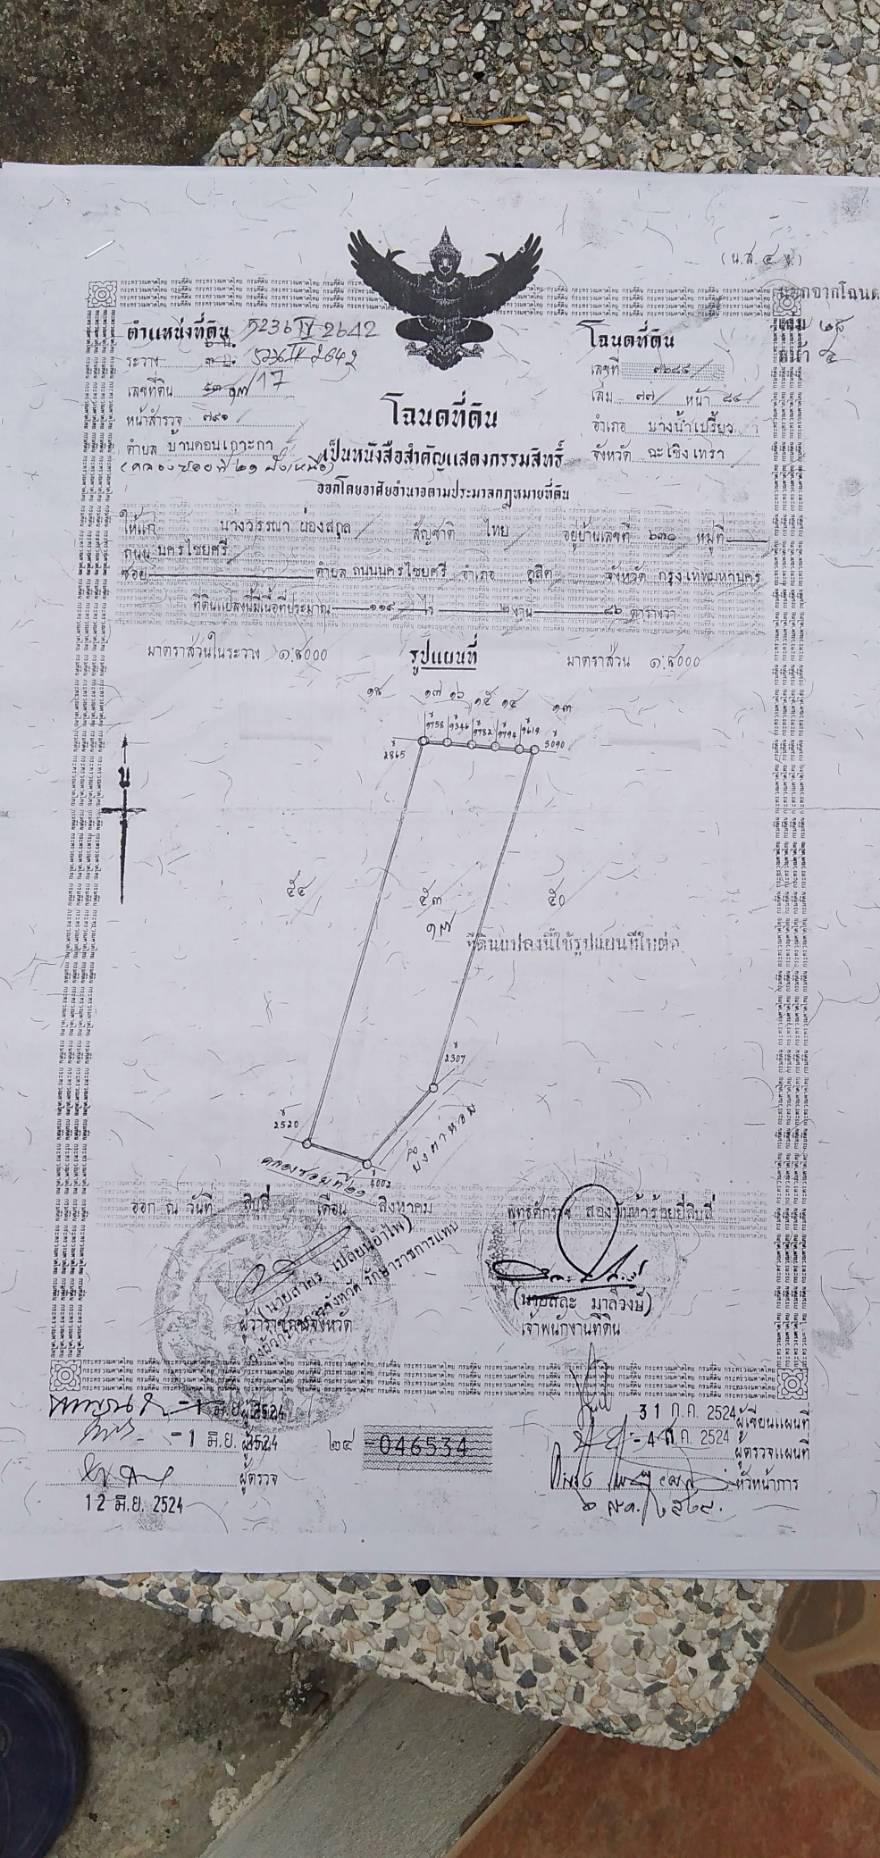 (น.ส. ๔ จ.)
ออกจากโฉนด
ตำแหน่งที่ดิน 5236 IV 2642
โฉนดที่ดิน
ระวาง 5236 IV 2642
เลขที่
เลขที่ดิน ๑๗/17
เล่ม ๗๗ หน้า ๘๔
หน้าสำรวจ ๗๙๑
โฉนดที่ดิน
อำเภอ บางน้ำเปรี้ยว
ตำบล บ้านดอนเกาะกา
เป็นหนังสือสำคัญแสดงกรรมสิทธิ์
จังหวัด ฉะเชิงเทรา
(คลองซอยที่ ๒๑ ฝั่งเหนือ)
ออกโดยอาศัยอำนาจตามประมวลกฎหมายที่ดิน
ให้แก่ นางวรรณา ผ่องสกุล สัญชาติ ไทย อยู่บ้านเลขที่ ๖๓๐ หมู่ที่
ถนน นครไชยศรี
ซอย ตำบล ถนนนครไชยศรี อำเภอ ดุสิต จังหวัด กรุงเทพมหานคร
ที่ดินแปลงนี้มีเนื้อที่ประมาณ ๑๑๙ ไร่ ๒ งาน ๘๖ ตารางวา
มาตราส่วนในระวาง ๑:๔000
รูปแผนที่
มาตราส่วน ๑:๔000
๑๘ ๑๗ ๑๖ ๑๕ ๑๔ ๑๓
ข 2865
9758 9346 9782 9794 9619
5090
น
๕๔
๕๓
๕๐
๑๗
ที่ดินแปลงนี้ใช้รูปแผนที่ใบต่อ
ข 2307
ข 2520
บึงตาหอม
คลองซอยที่ ๒๑
ออก ณ วันที่ สิบสี่ เดือน สิงหาคม พุทธศักราช สองพันห้าร้อยยี่สิบสี่
(นายสาคร เปลี่ยนอำไพ)
รองผู้ว่าราชการจังหวัด รักษาราชการแทน
ผู้ว่าราชการจังหวัด
(นายสละ มาลีวงษ์)
เจ้าพนักงานที่ดิน
-1 มิ.ย. 2524
31 ก.ค. 2524 ผู้เขียนแผนที่
-1 มิ.ย. 2524
๒๔ -046534
-4 2524 ผู้ตรวจแผนที่
ผู้ตรวจ
หัวหน้าการ
12 มิ.ย. 2524